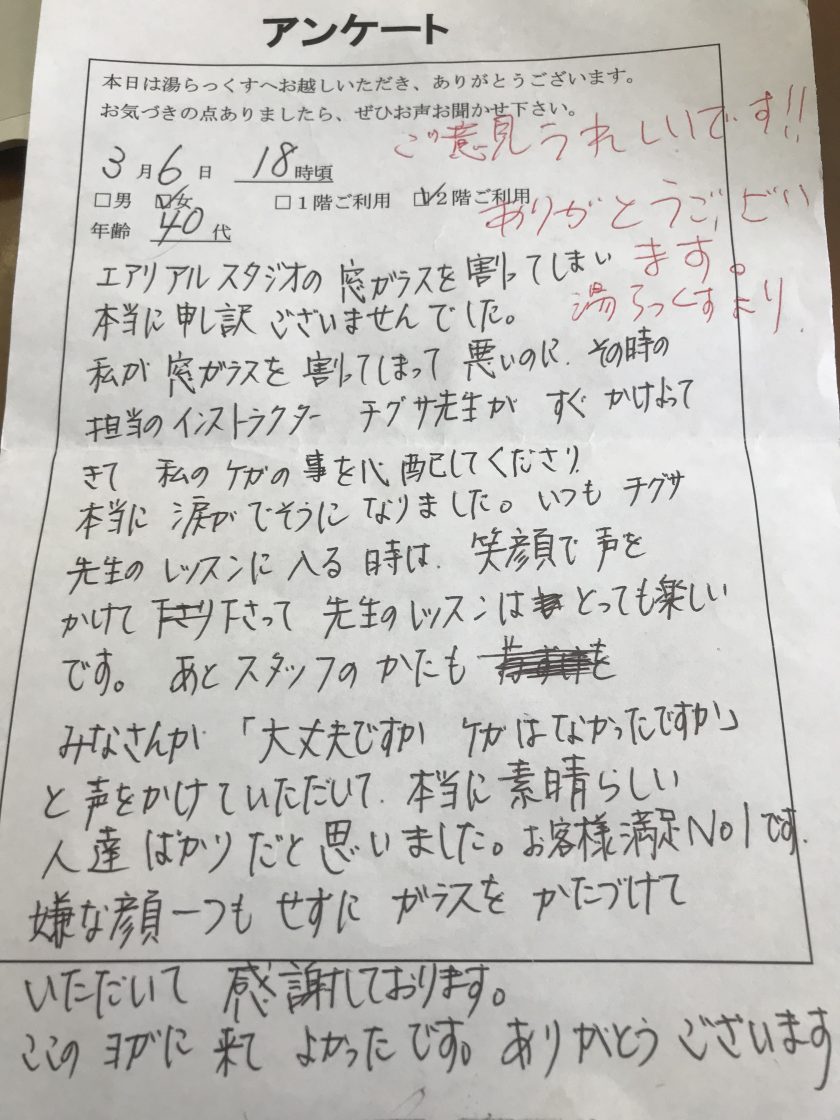 アンケート
本日は湯らっくすへお越しいただき、ありがとうございます。
お気づきの点ありましたら、ぜひお声お聞かせ下さい。
ご意見うれしいです!!
3月6日 18時頃
□男 ☑女 □1階ご利用 ☑2階ご利用
ありがとうござい
年齢 40代
ます。
湯らっくすより
エアリアルスタジオの窓ガラスを割ってしまい
本当に申し訳ございませんでした。
私が窓ガラスを割ってしまって悪いのに、その時の
担当のインストラクター チグサ先生が すぐ かけよって
きて 私のケガの事を心配してくださり
本当に涙がでそうになりました。いつも チグサ
先生の レッスンに入る時は、笑顔で声を
かけて 下さって 先生のレッスンは とっても楽しい
です。 あと スタッフの かたも
みなさんが 「大丈夫ですか ケガはなかったですか」
と声をかけていただいて、本当に素晴らしい
人達ばかりだと思いました。お客様満足No1です。
嫌な顔一つもせずに ガラスを かたづけて
いただいて 感謝しております。
ここの ヨガに来て よかったです。ありがとうございます